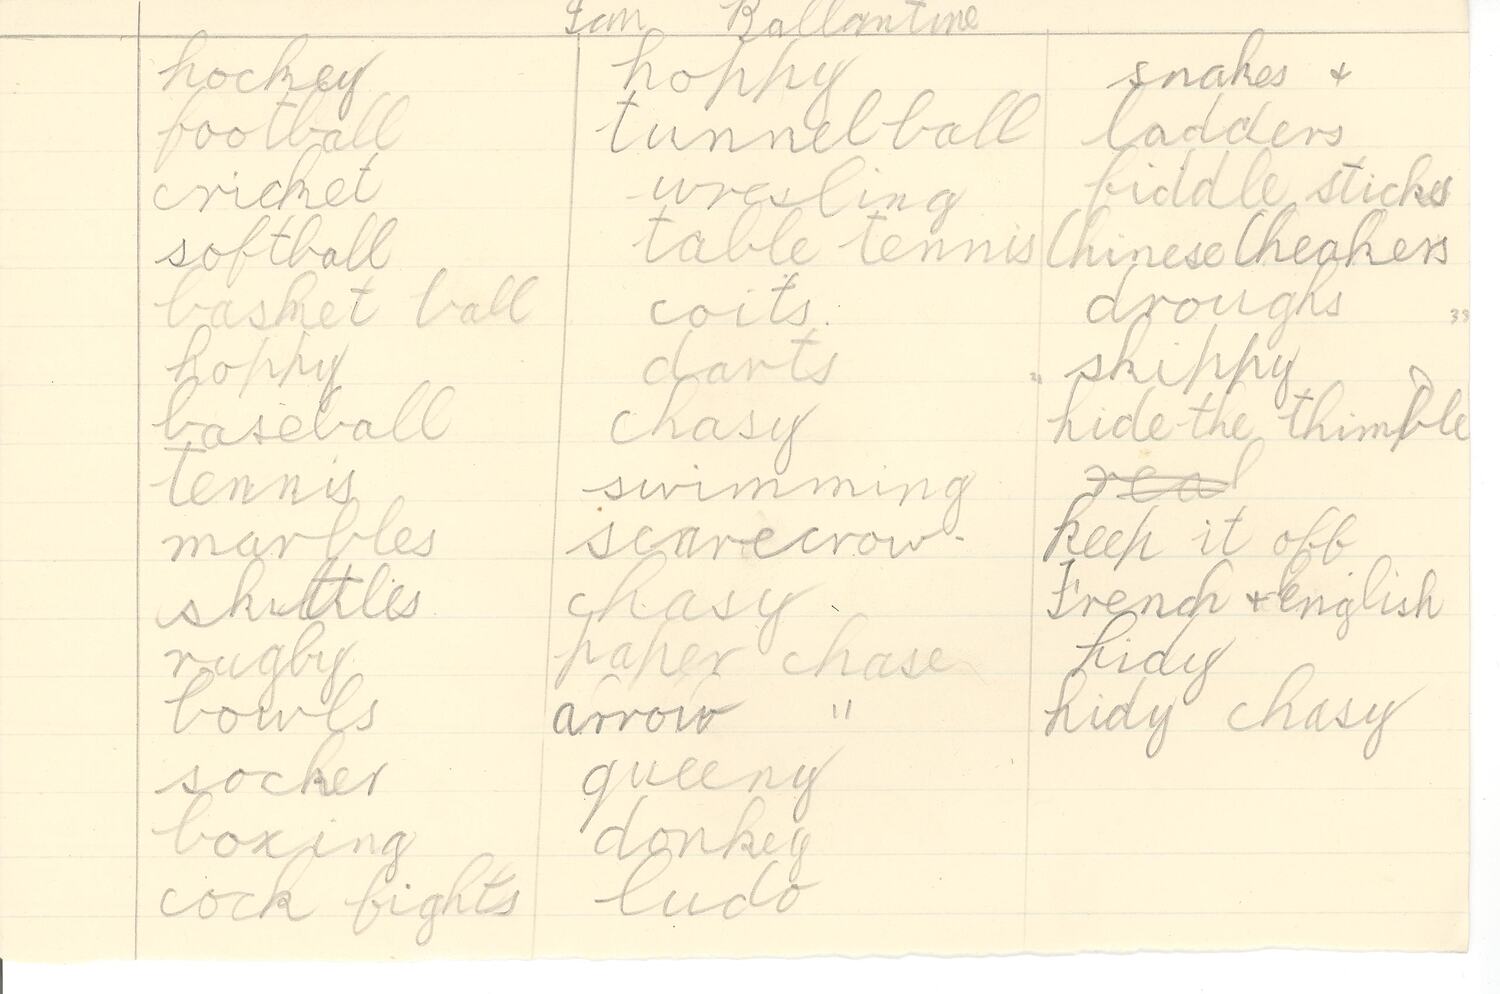 Ian Ballantine
hockey
football
cricket
softball
basket ball
hoppy
baseball
tennis
marbles
skittles
rugby
bowls
socker
boxing
cock fights
hoppy
tunnel ball
wresling
table tennis
coits
darts
chasy
swimming
scarecrow
chasy
paper chase
arrow "
queeny
donkey
ludo
snakes +
ladders
fiddle sticks
Chinese Cheakers
droughs
33
skippy
hide the thimble
real
keep it off
French + English
hidy
hidy chasy